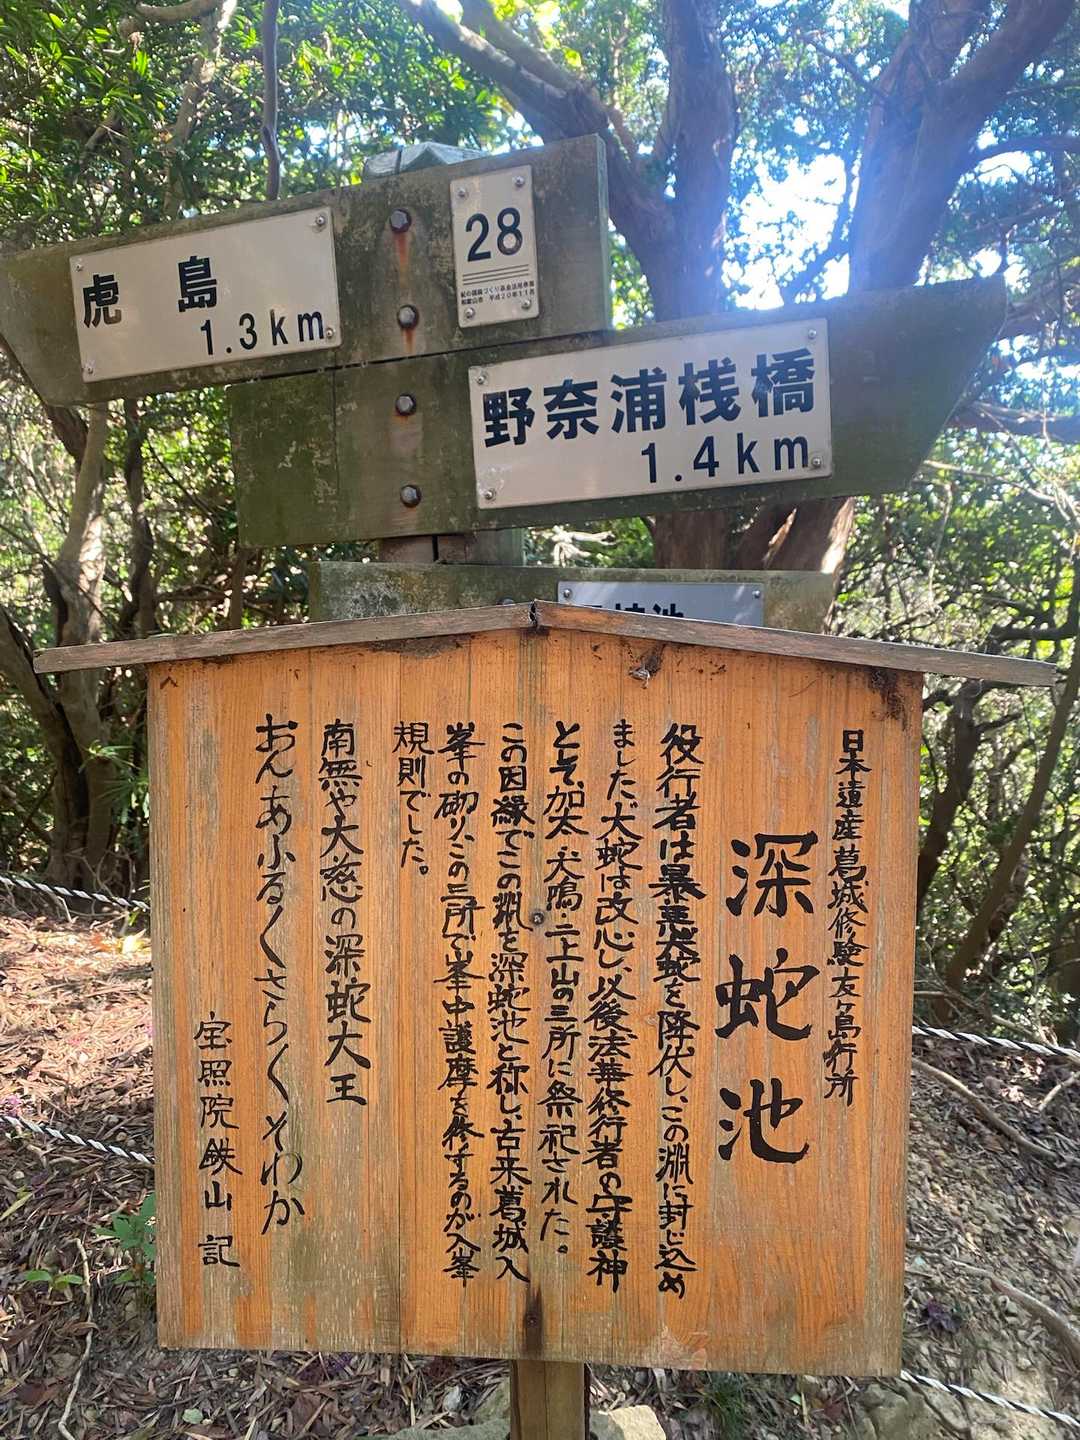 虎島
1.3km
28
紀の国森づくり基金活用事業
和歌山市 平成20年11月
野奈浦桟橋
1.4km
日本遺産葛城修験友ヶ島行所
深蛇池
役行者は暴悪大蛇を降伏し、この淵に封じ込め
ました。大蛇は改心し、以後法華修行者の守護神
として、加太・犬鳴・二上山の三所に祭祀された。
この因縁でこの淵を深蛇池と称し、古来葛城入
峯の砌り、この三所で峯中護摩を修するのが入峯
規則でした。
南無や大慈の深蛇大王
おんあふるくさらくそわか
宝照院鉄山 記